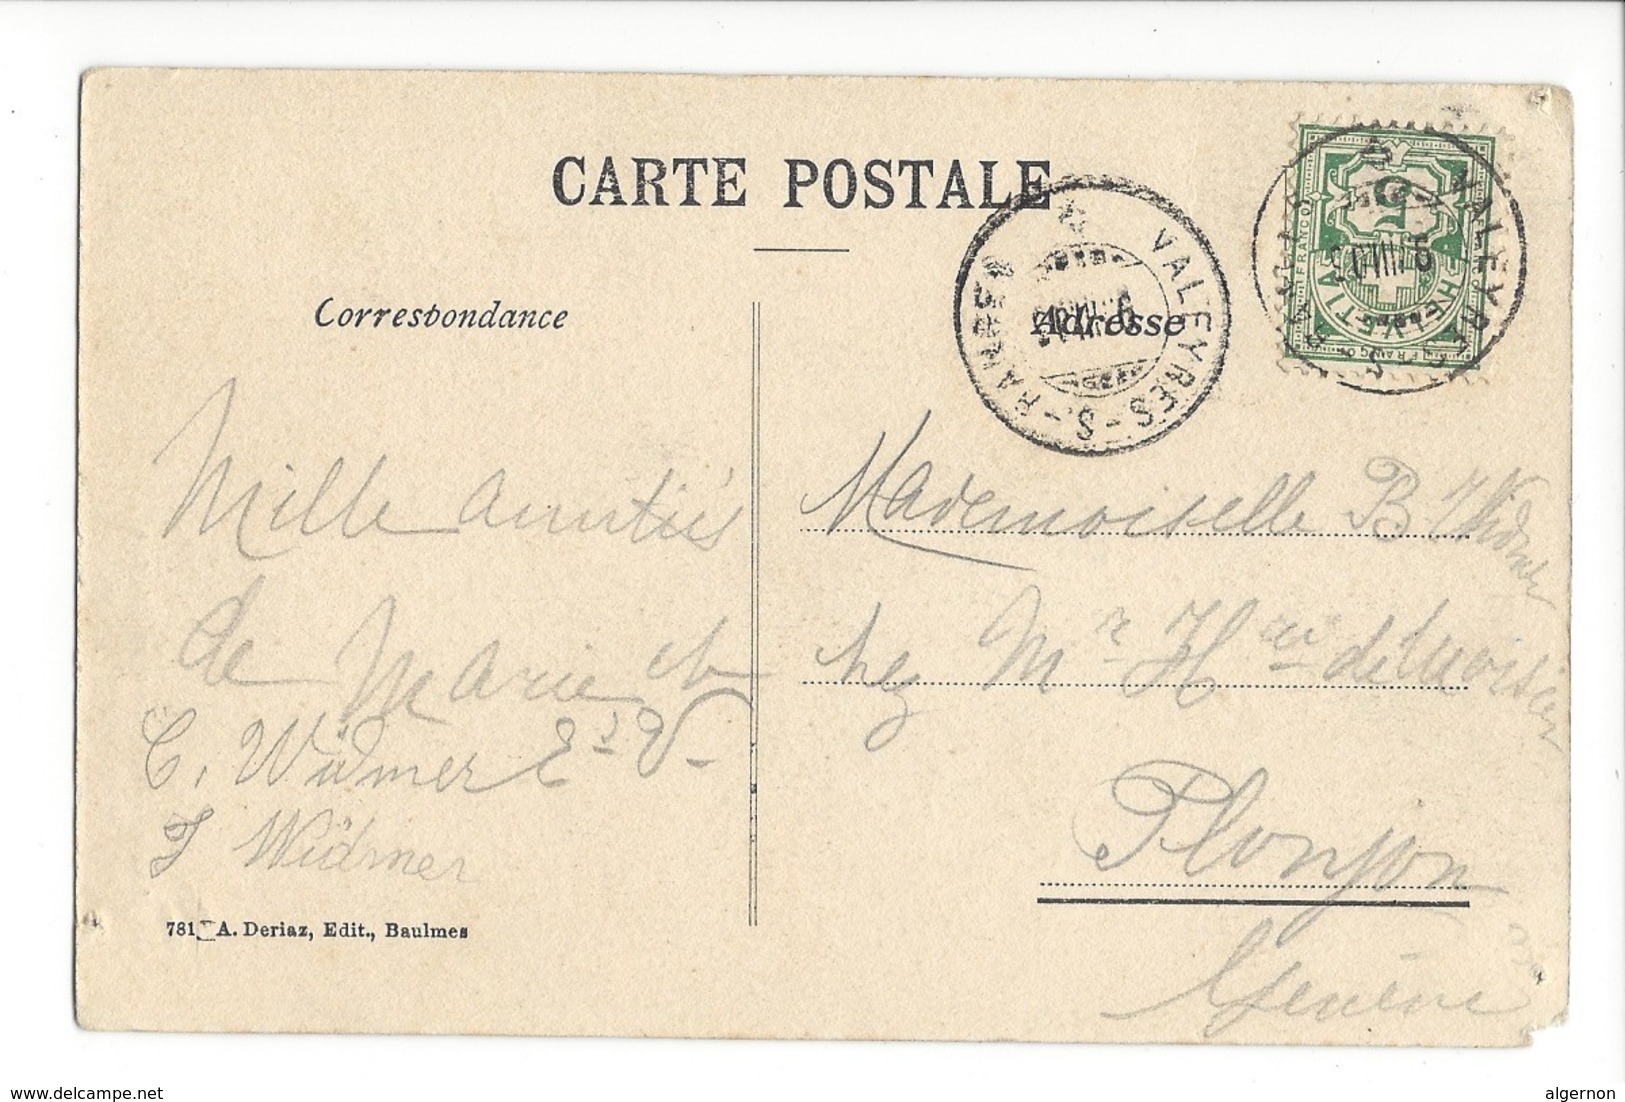 CARTE POSTALE
Correspondance
Adresse
VALEYRES-S-RANCES
VALEYRES-S-RANCES
HELVETIA
5
FRANCO
Mille amitiés
de Marie et
C. Widmer E V
J Widmer
Mademoiselle B Widmer
chez Mr H
Plonjon
Genève
781 A. Deriaz, Edit., Baulmes
www.delcampe.net
algernon